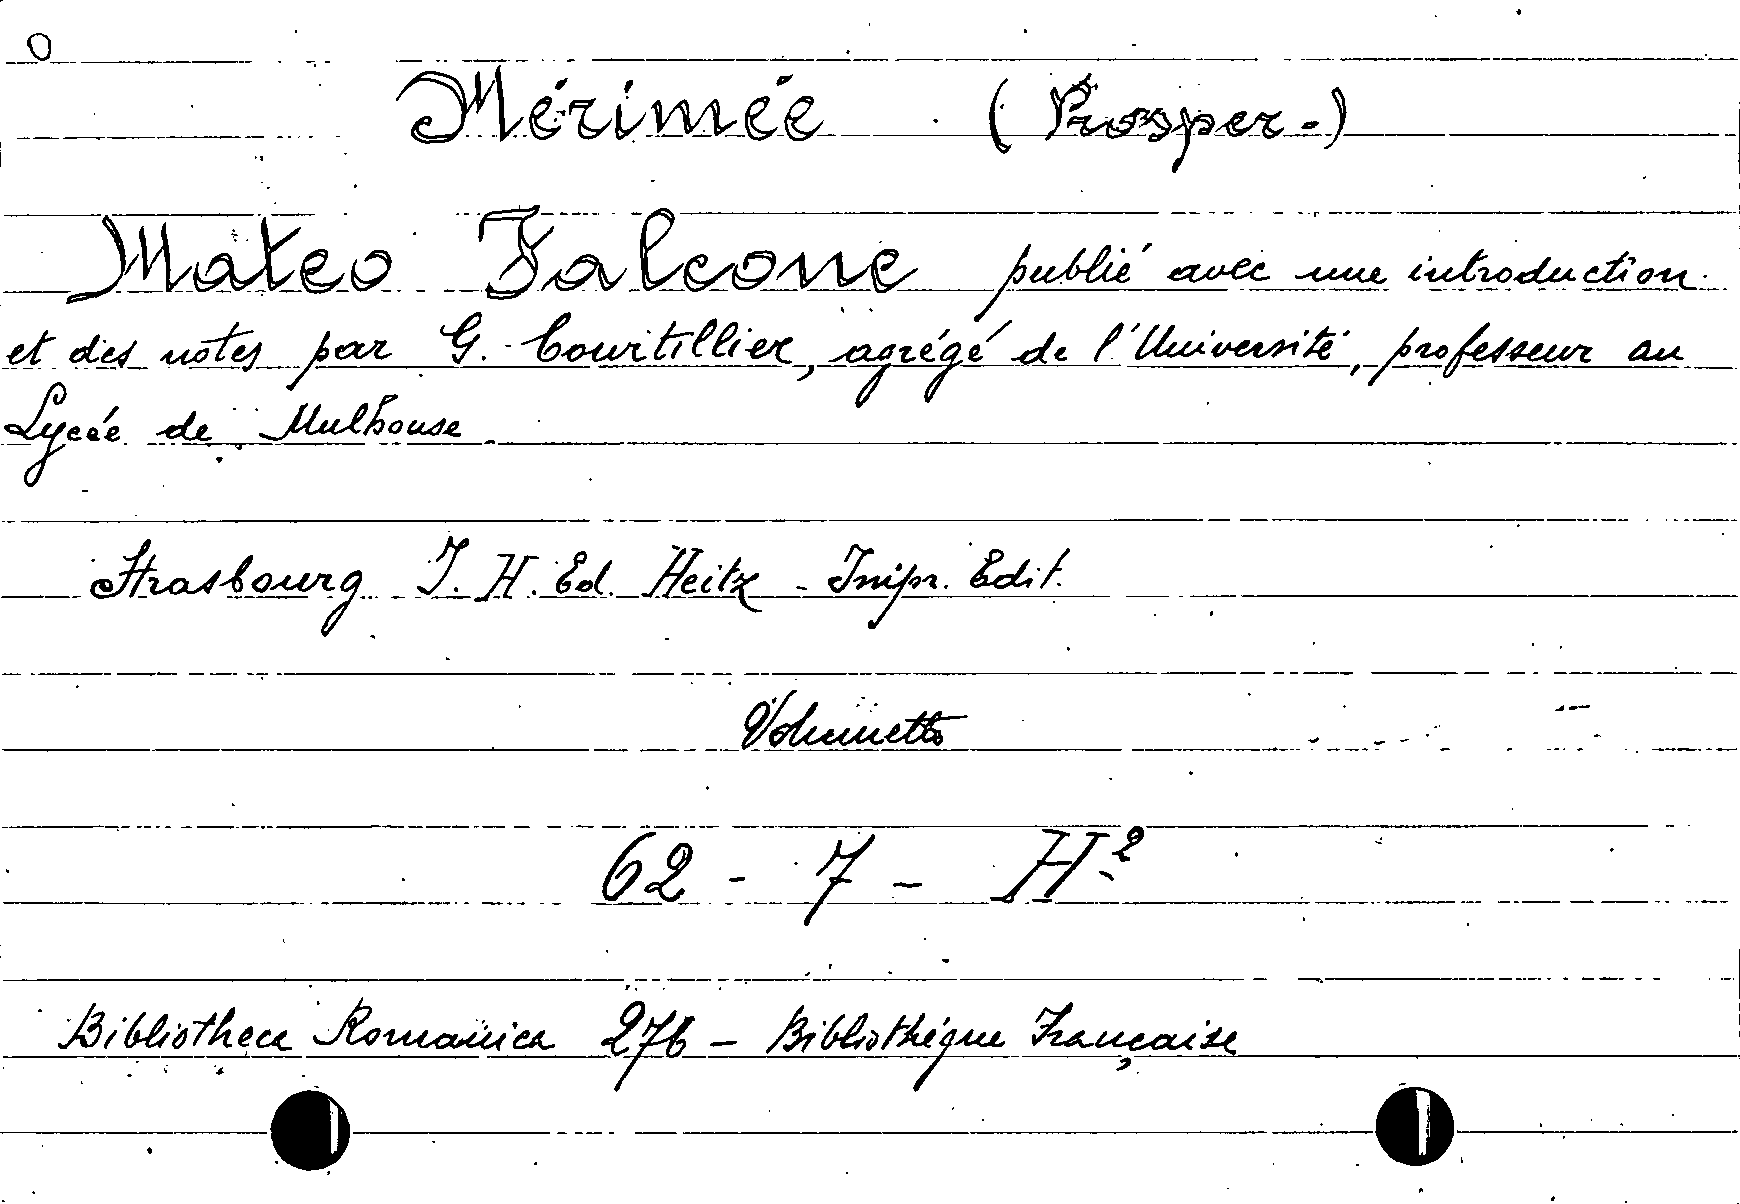 Mérimée (Prosper-)
Mateo Falcone publié avec une introduction
et des notes par G. Courtillier, agrégé de l'Université, professeur au
Lycée de Mulhouse.
Strasbourg J. H. Ed. Heitz - Impr. Edit.
Volumetto
62 - 7 - H²
Bibliotheca Romanica 276 - Bibliothéque Française